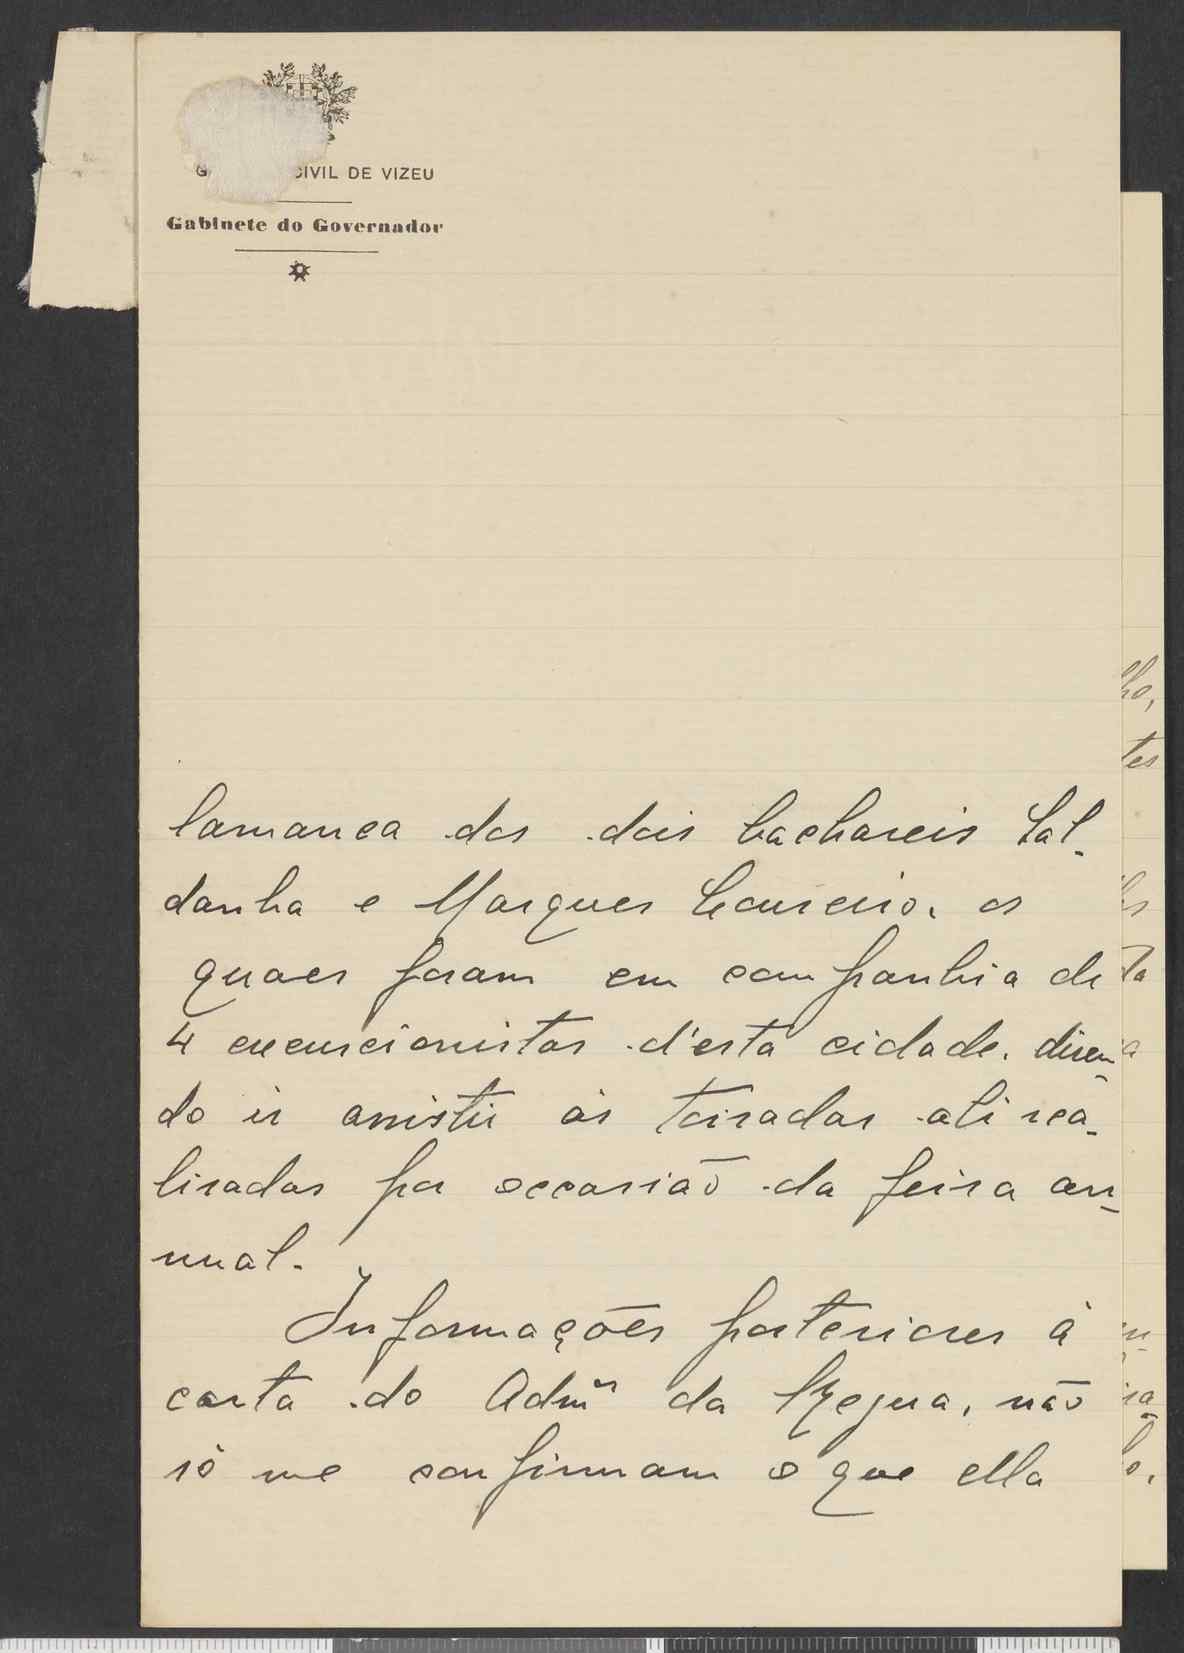 G CIVIL DE VIZEU
Gabinete do Governador
lamanca dos dois bachareis Sal-
danha e Marques Loureiro, os
quaes foram em companhia de
4 excursionistas d'esta cidade, dizen-
do ir assistir ás toiradas ali rea-
lisadas por occasião da feira an-
nual.
Informações posteriores á
carta do Admor da Regua, não
só me confirmam o que ella